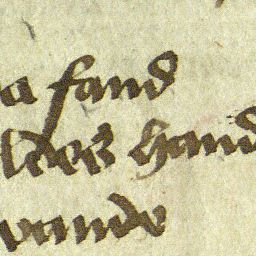 a fand
ldes hand
vande